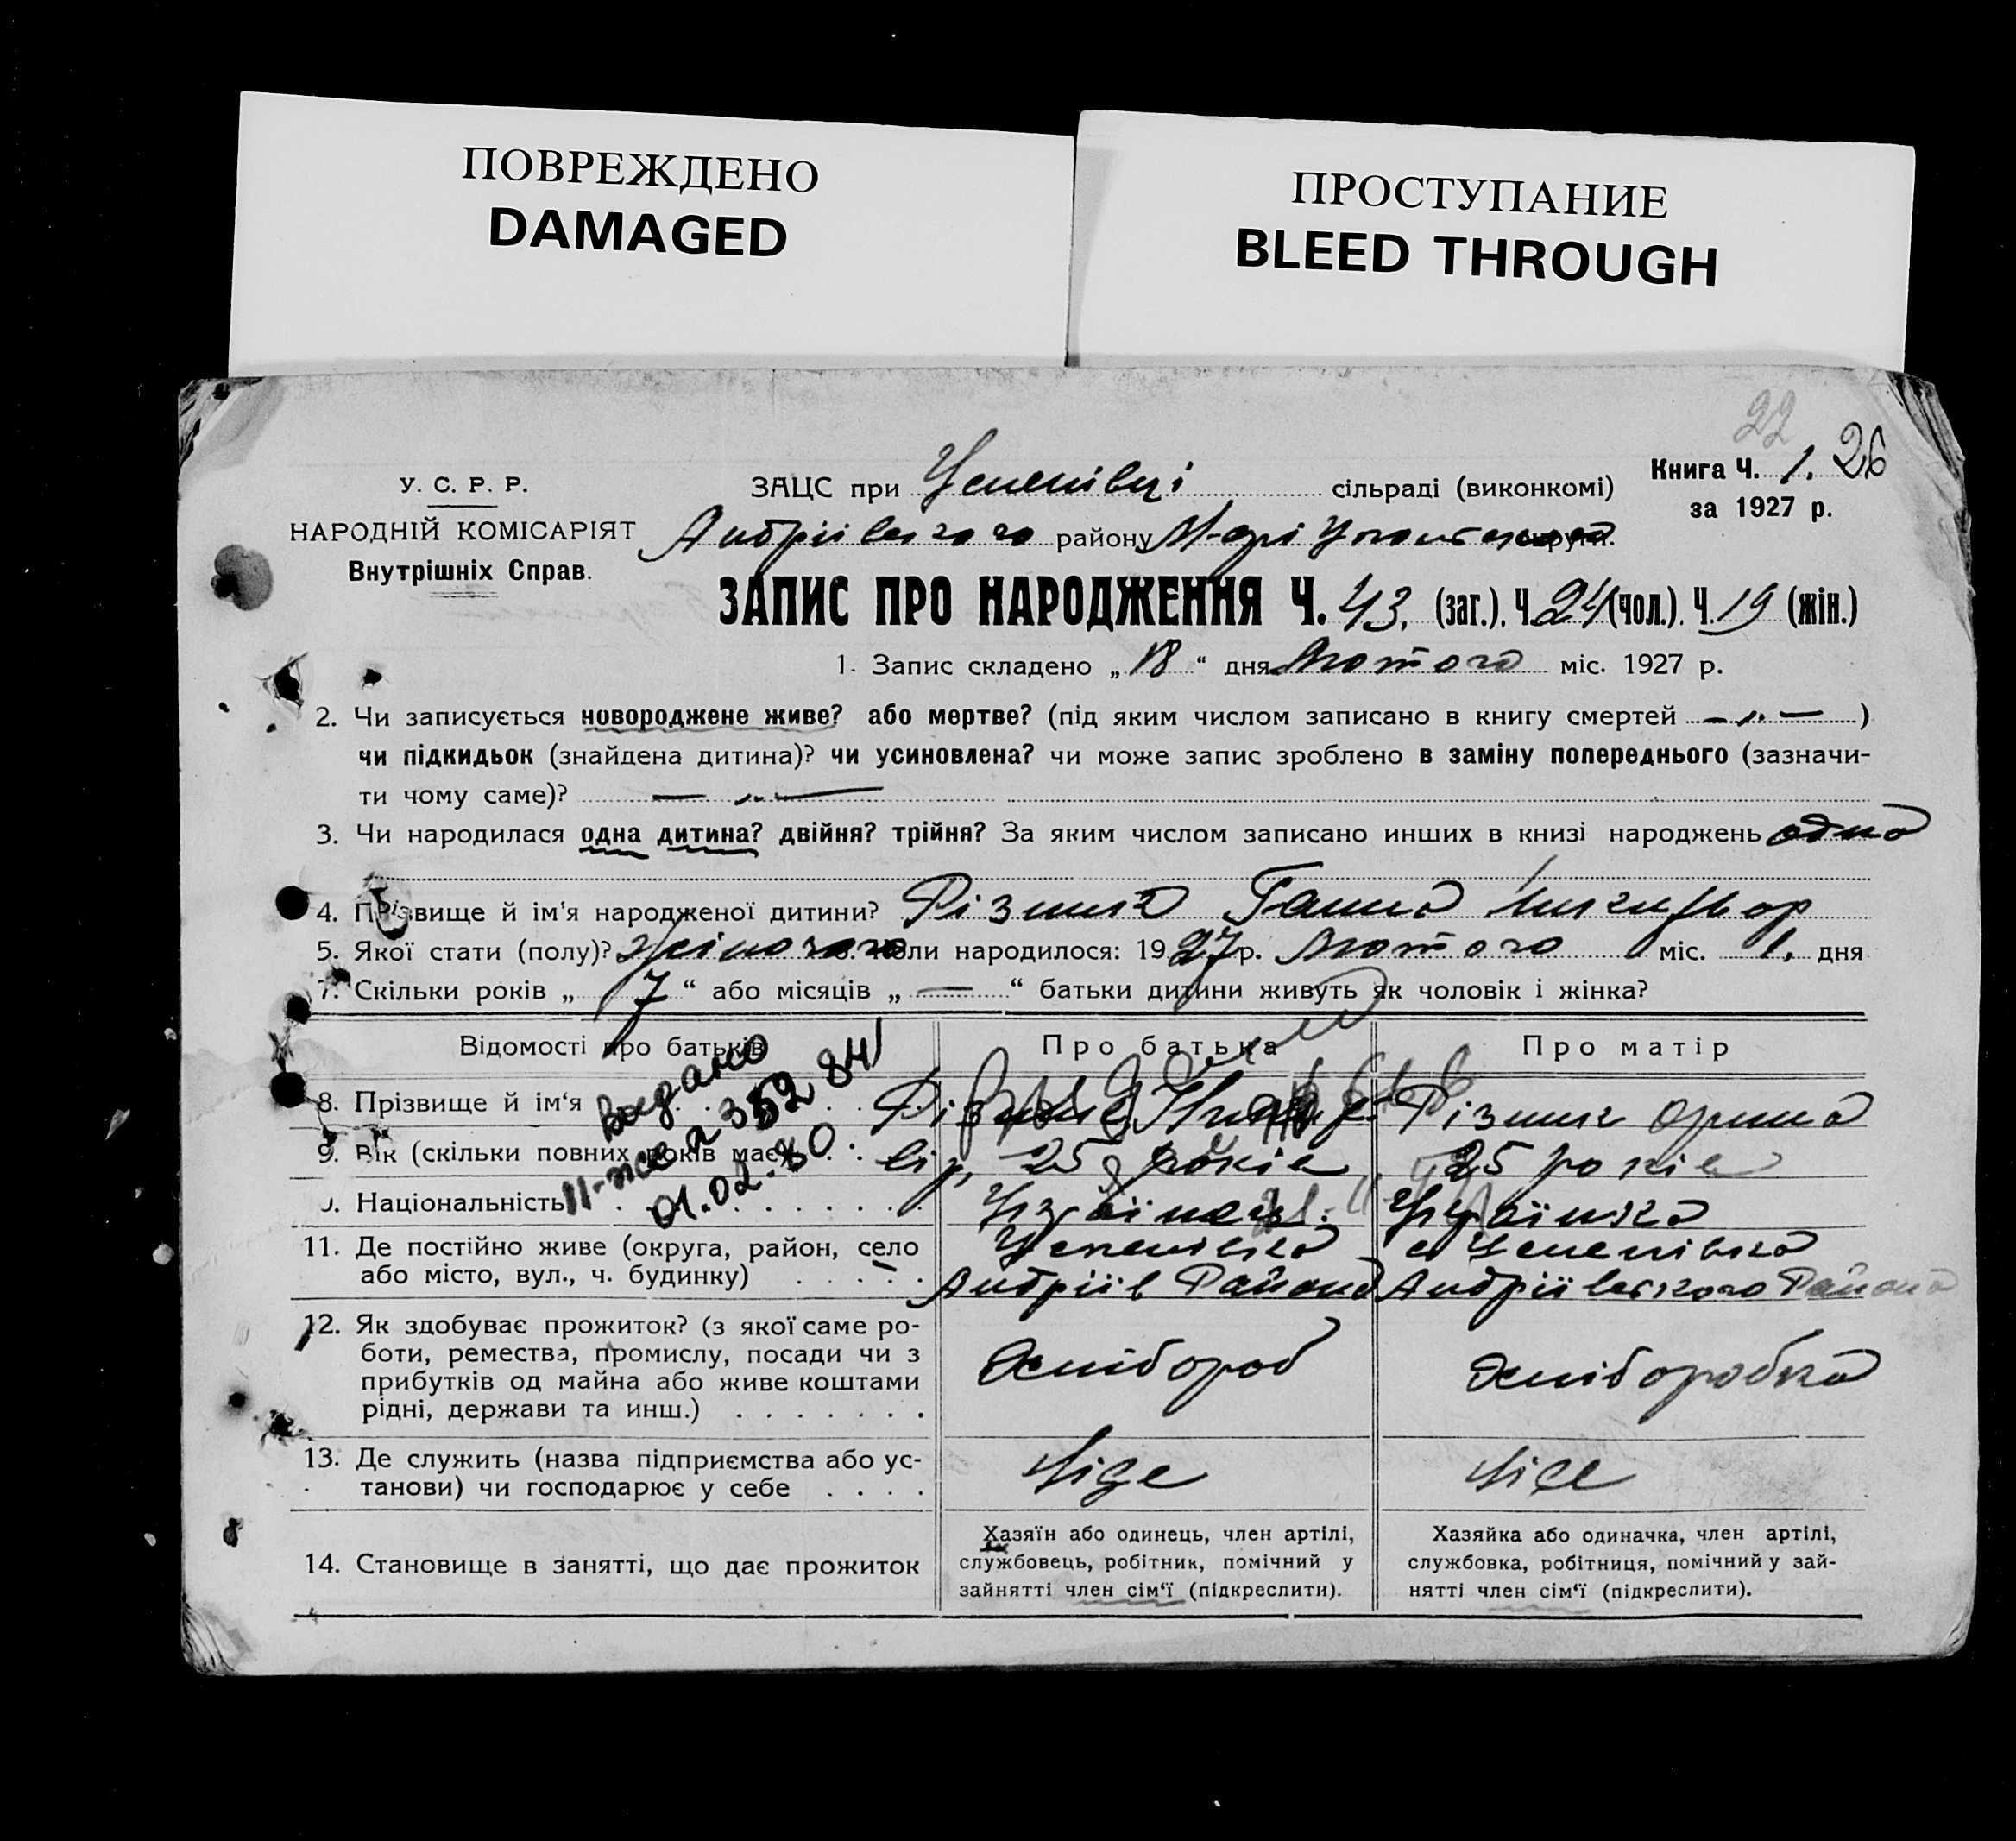 ПОВРЕЖДЕНО
DAMAGED
ПРОСТУПАНИЕ
BLEED THROUGH
22
Книга Ч. 1. 26
за 1927 р.
У. С. Р. Р.
НАРОДНІЙ КОМІСАРІЯТ
Внутрішніх Справ.
ЗАЦС при Успенівці сільраді (виконкомі)
Андріївського району округи.
ЗАПИС ПРО НАРОДЖЕННЯ Ч. 43. (заг.). Ч. 24 (чол.). Ч. 19 (жін.)
1. Запис складено „ 18 “ дня Лютого міс. 1927 р.
2. Чи записується новороджене живе? або мертве? (під яким числом записано в книгу смертей — „ — )
чи підкидьок (знайдена дитина)? чи усиновлена? чи може запис зроблено в заміну попереднього (зазначи-
ти чому саме)? — „ —
3. Чи народилася одна дитина? двійня? трійня? За яким числом записано инших в книзі народжень одна
4. Прізвище й ім'я народженої дитини? Різник Ганна
5. Якої стати (полу)? жіночого 6. Коли народилося: 1927 р. Лютого міс. 1. дня
7. Скільки років „ 7 “ або місяців „ — “ батьки дитини живуть як чоловік і жінка?
Відомості про батьків
Про батька
Про матір
8. Прізвище й ім‘я
Різник
Різник Орина
9. Вік (скільки повних років має)
25 років
25 років
Видано
II-жс 2 352 841
01.02.80
Національність
Українец.
Українка
11. Де постійно живе (округа, район, село
або місто, вул., ч. будинку)
Успенівка
Андріїв Района
с Успенівка
Андріївського Района
12. Як здобуває прожиток? (з якої саме ро-
боти, ремества, промислу, посади чи з
прибутків од майна або живе коштами
рідні, держави та инш.)
Хлібороб
Хліборобка
13. Де служить (назва підприємства або ус-
танови) чи господарює у себе
Ніде
Ніде
14. Становище в занятті, що дає прожиток
Хазяїн або одинець, член артілі,
службовець, робітник, помічний у
зайнятті член сім‘ї (підкреслити).
Хазяйка або одиначка, член артілі,
службовка, робітниця, помічний у зай-
нятті член сім‘ї (підкреслити).